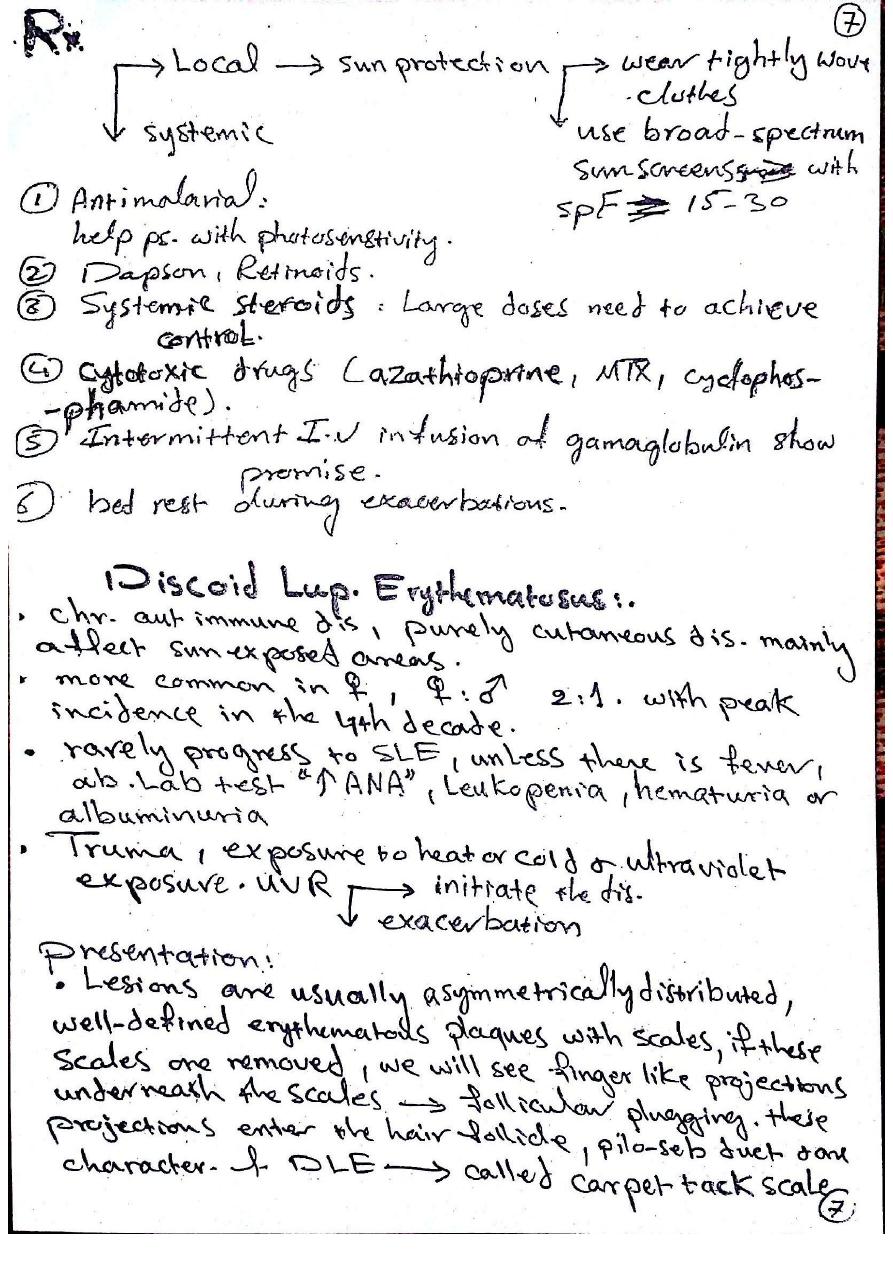 7
Rx
Local → sun protection → wear tightly wove
clothes
systemic
use broad-spectrum
sunscreens with
SPF ≥ 15-30
① Antimalarial:
help ps. with photosenstivity.
② Dapson, Retinoids.
③ Systemic steroids: Large doses need to achieve
control.
④ Cytotoxic drugs (azathioprine, MTX, cyclophos-
-phamide).
⑤ Intermittent I.V infusion of gamaglobulin show
promise.
⑥ bed rest during exacerbations.
Discoid Lup. Erythematosus:.
• chr. autimmune dis, purely cutaneous dis. mainly
affect sun exposed areas.
• more common in ♀, ♀:♂ 2:1. with peak
incidence in the 4th decade.
• rarely progress to SLE, unless there is fever,
ab. Lab test "↑ANA", Leukopenia, hematuria or
albuminuria
• Truma, exposure to heat or cold or ultraviolet
exposure. UVR → initiate the dis.
↓ exacerbation
presentation:
• Lesions are usually asymmetrically distributed,
well-defined erythematous plaques with scales, if these
scales are removed, we will see finger like projections
underneath the scales → follicular plugging. these
projections enter the hair follicle, pilo-seb duct are
character. of DLE → called carpet tack scale
7